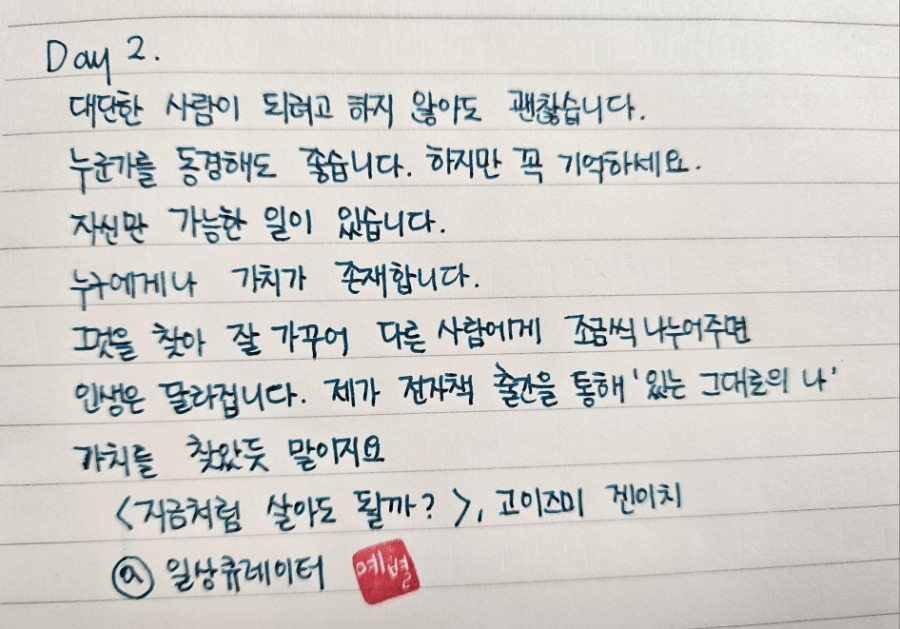 Day 2.
대단한 사람이 되려고 하지 않아도 괜찮습니다.
누군가를 동경해도 좋습니다. 하지만 꼭 기억하세요.
자신만 가능한 일이 있습니다.
누구에게나 가치가 존재합니다.
그것을 찾아 잘 가꾸어 다른 사람에게 조금씩 나누어주면
인생은 달라집니다. 제가 전자책 출간을 통해 '있는 그대로의 나'
가치를 찾았듯 말이지요
<지금처럼 살아도 될까?>, 고이즈미 겐이치
@ 일상큐레이터 예별